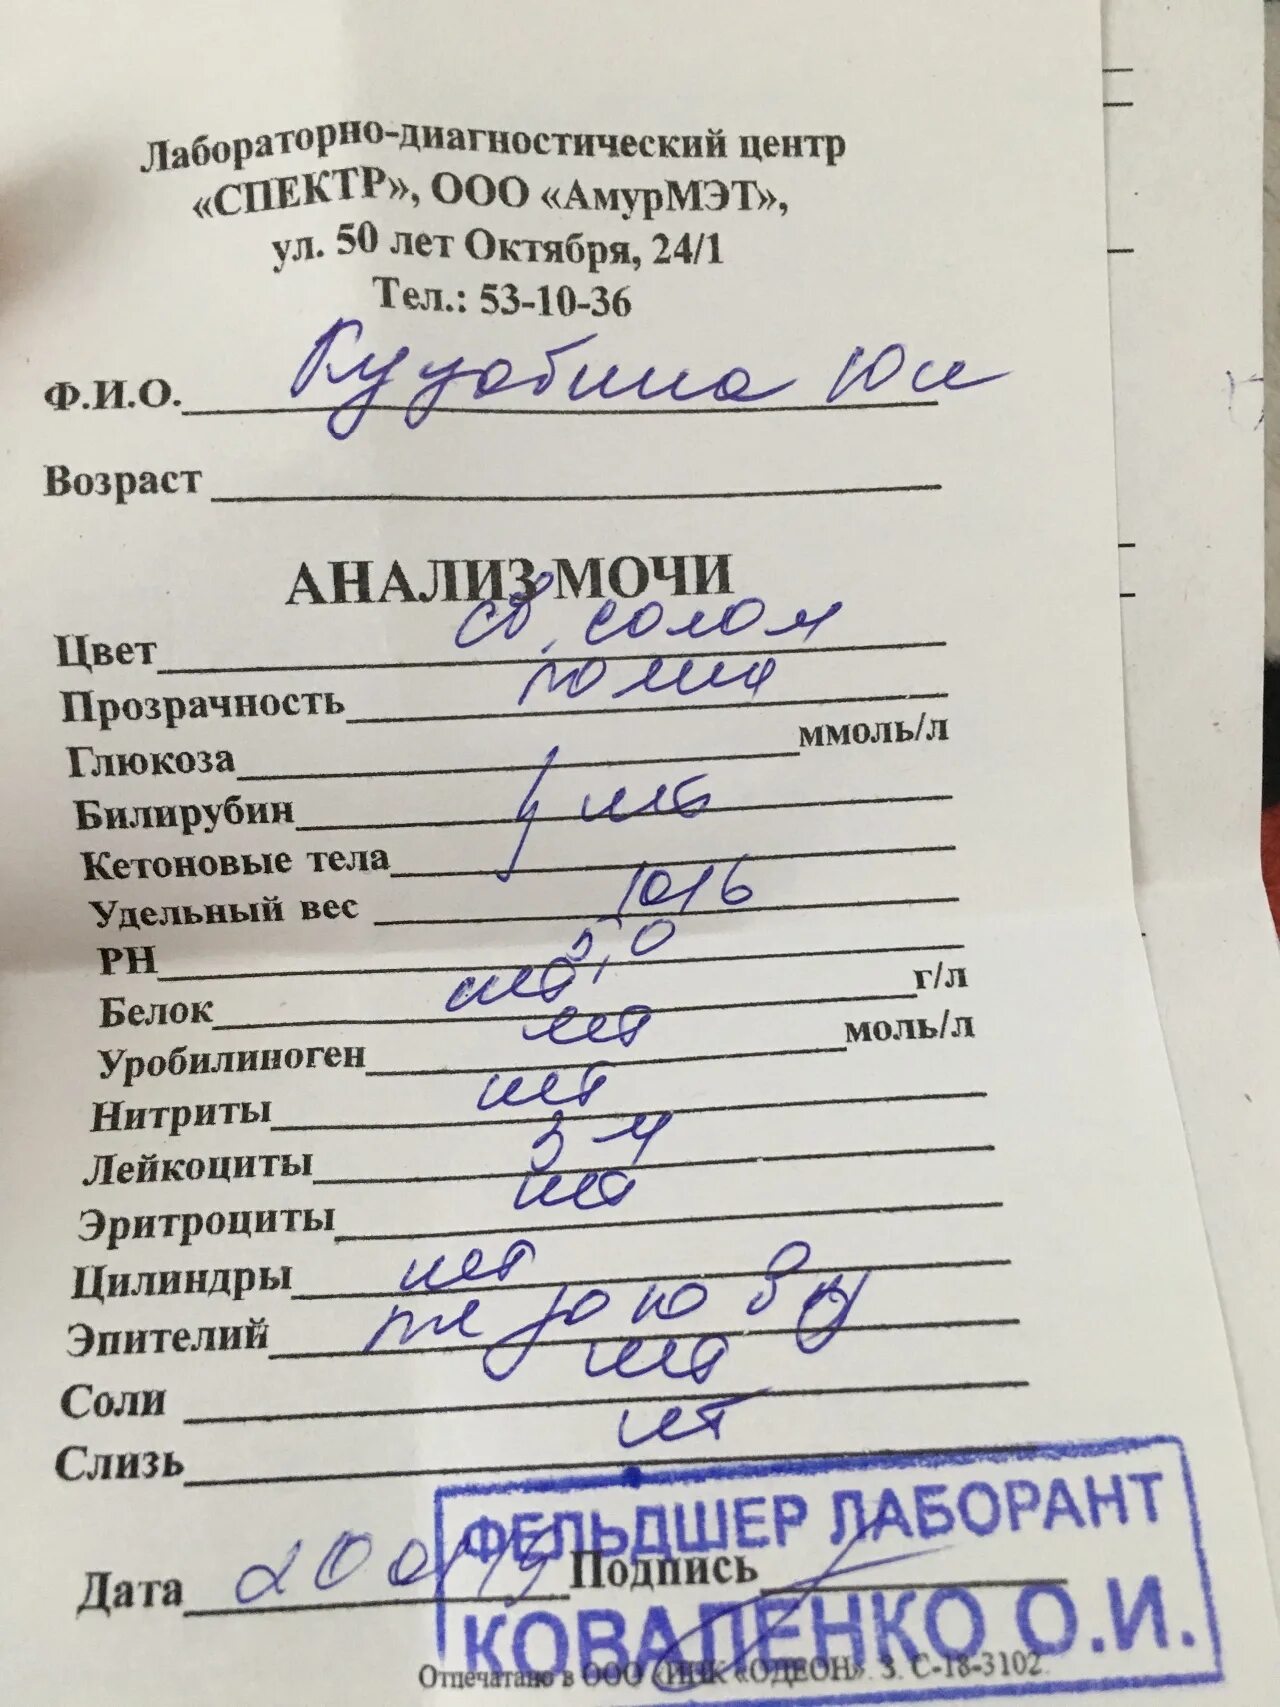 Лабораторно-диагностический центр
«СПЕКТР», ООО «АмурМЭТ»,
ул. 50 лет Октября, 24/1
Тел.: 53-10-36
Ф.И.О.
Возраст
АНАЛИЗ МОЧИ
Цвет св. солом
Прозрачность полная
Глюкоза ммоль/л
Билирубин нет
Кетоновые тела
Удельный вес 1016
РН 5,0
Белок нет г/л
Уробилиноген нет моль/л
Нитриты нет
Лейкоциты
Эритроциты нет
Цилиндры нет
Эпителий
Соли нет
Слизь нет
ФЕЛЬДШЕР ЛАБОРАНТ
Дата Подпись
КОВАЛЕНКО О.И.
Отпечатано в ООО «ИПК «ОДЕОН». З. С-18-3102